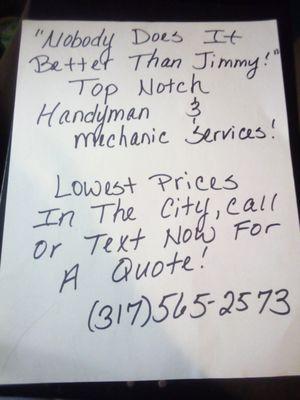 "Nobody Does It
Better Than Jimmy!"
Top Notch
Handyman &
mechanic services!
Lowest Prices
In The City, call
Or Text Now For
A Quote!
(317)565-2573